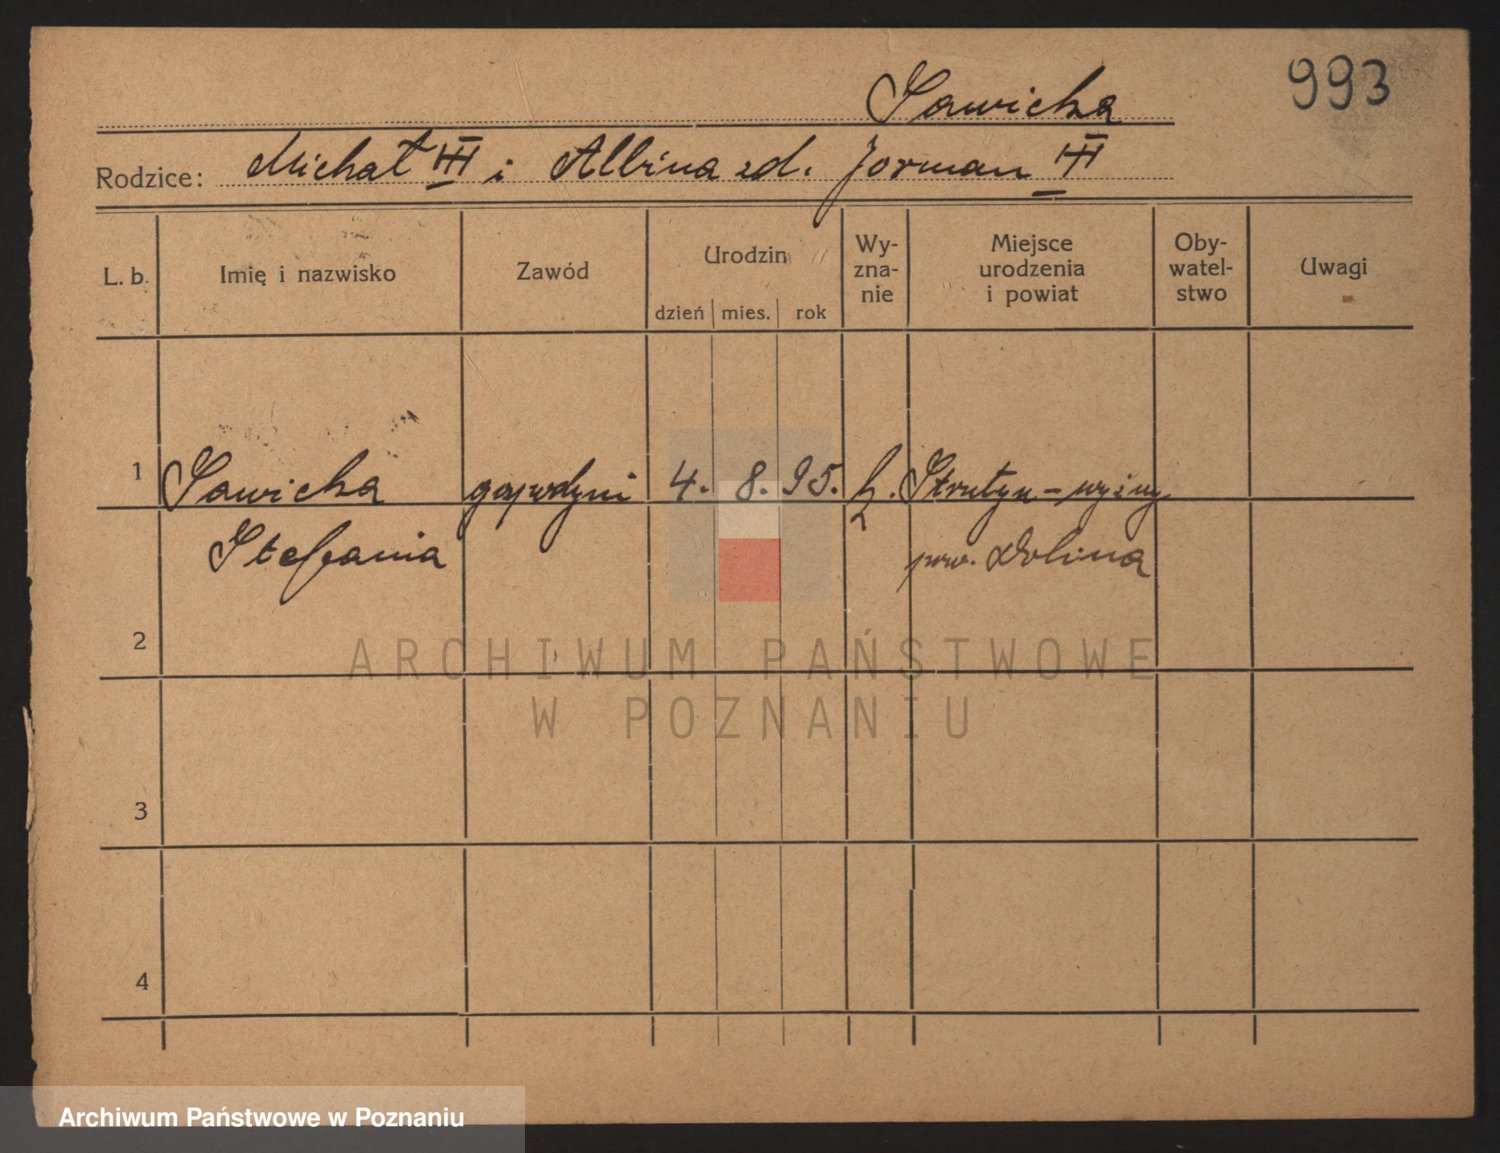 993
Sawicka
Rodzice: Michał i Albina zd. Jorman
L. b.
Imię i nazwisko
Zawód
Urodzin
dzień mies. rok
Wy-
zna-
nie
Miejsce
urodzenia
i powiat
Oby-
watel-
stwo
Uwagi
1 Sawicka gospodyni 4. 8. 95. Strutyn - wyżny
Stefania pow. Dolina
2
3
4
ARCHIWUM PAŃSTWOWE
W POZNANIU
Archiwum Państwowe w Poznaniu